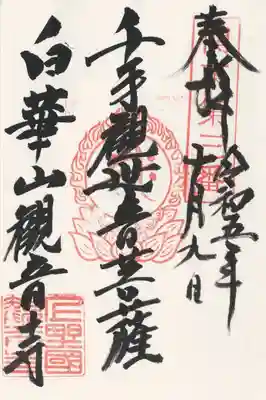 奉拝
令和五年
十月九日
千手觀世音菩薩
白華山觀音寺